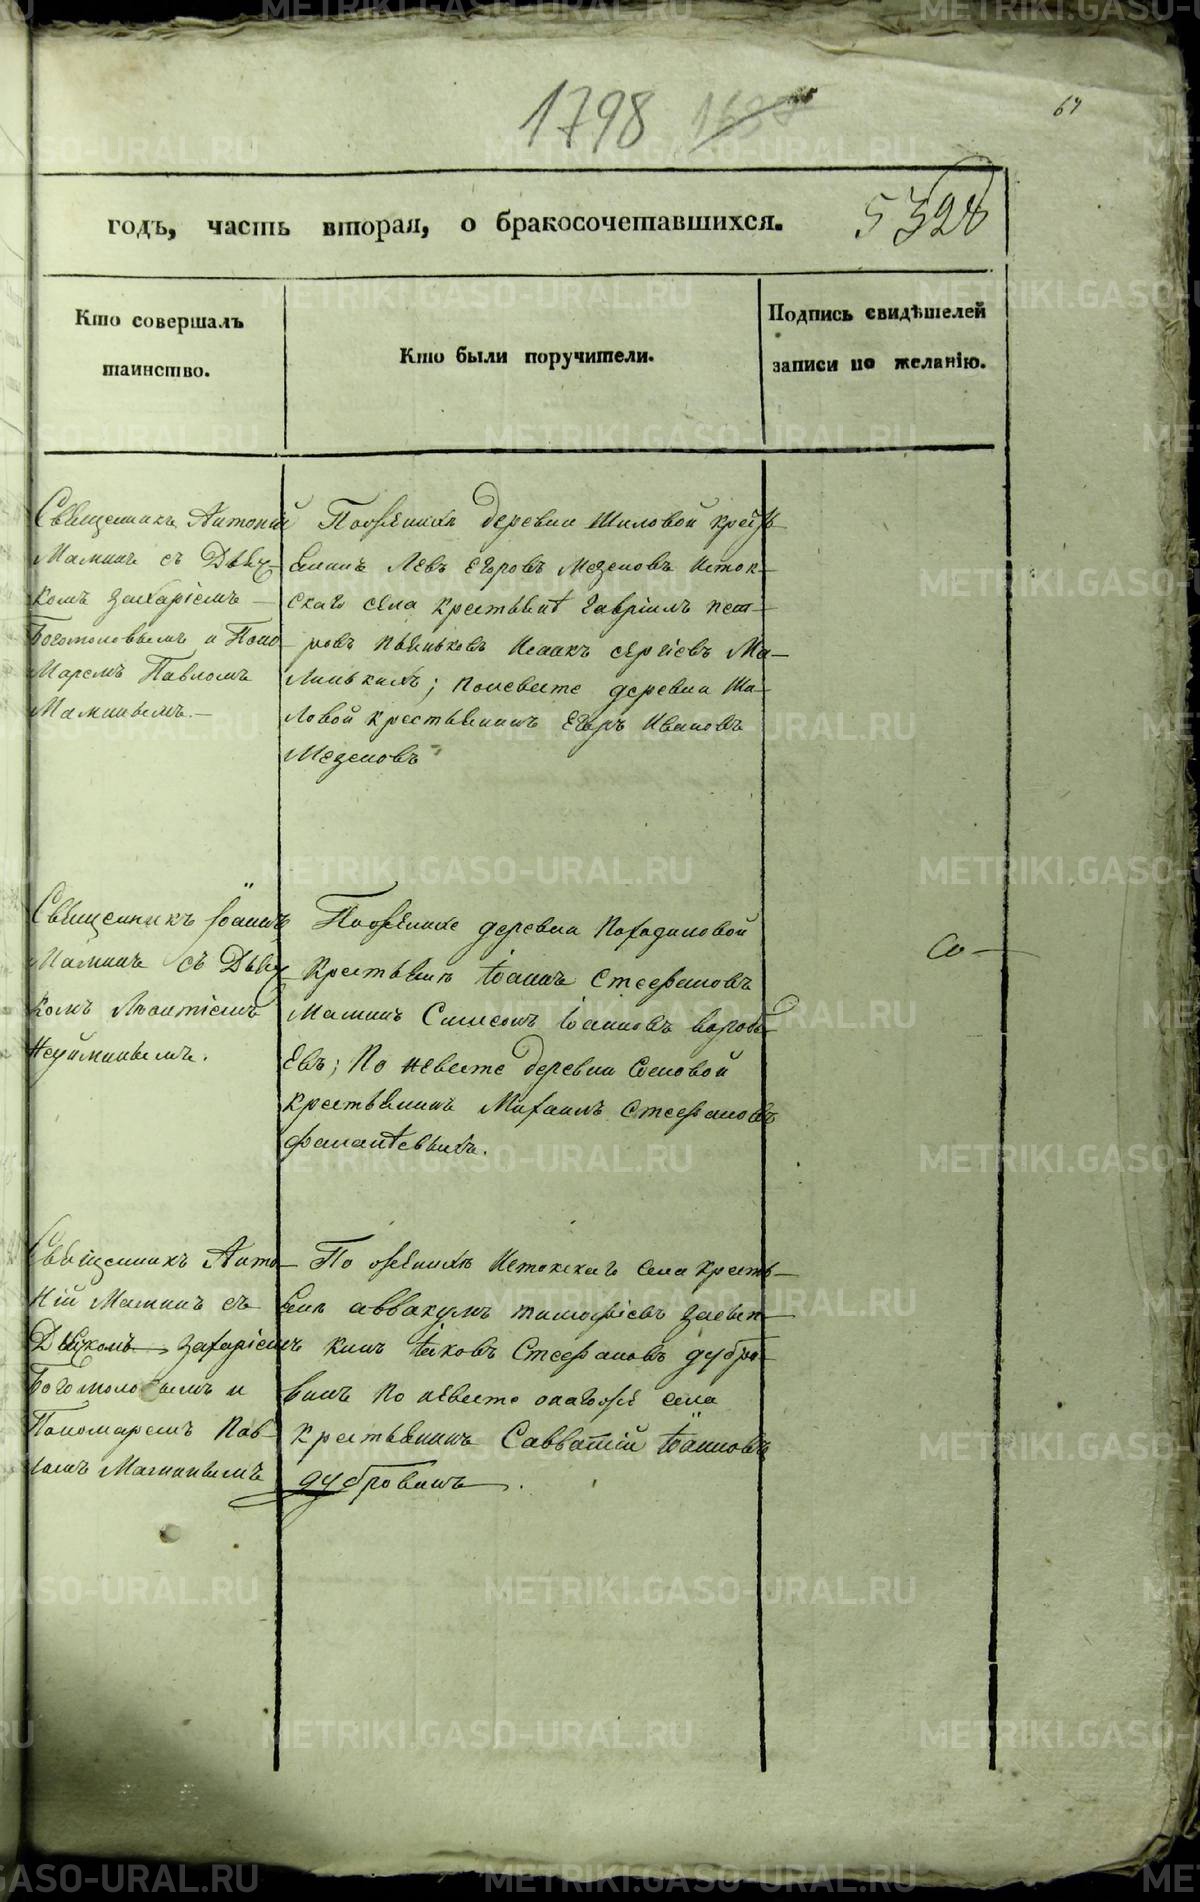 1798 1638
67
годъ, часть вторая, о бракосочетавшихся.
5328
Кто совершалъ
таинство.
Кто были поручители.
Подпись свидѣтелей
записи по желанію.
Священникъ Антоній
Маминъ съ Дьяч-
комъ Захаріемъ
Богомоловымъ и Поно
Маремъ Павломъ
Маминымъ.
По женихѣ деревни Шиловой крестья
янинъ Левъ Егоровъ Мезеновъ Исток-
скаго села крестьяне Гавріилъ пет-
ровъ Пьянковъ Исаакъ сергіевъ Ма-
Линькихъ; По невѣсте деревни Ши-
ловой крестьянинъ Егоръ Ивановъ
Мезеновъ
Священникъ Іоаннъ
Маминъ съ Дьяч
комъ Леонтіемъ
Неуйминымъ.
По женихе деревни
Крестьянинъ Іоаннъ Стефановъ
Маминъ Симеонъ Іоанновъ вороб
Евъ; По невесте деревни
крестьянинъ Михаилъ Стефановъ
Священникъ Анто-
ній Маминъ съ
Дьячкомъ Захаріемъ
Богомоловымъ и
Пономаремъ Пав-
ломъ Маминымъ
По женихѣ Истокскаго села кресть-
яне аввакумъ тимофіевъ
кинъ Іаковъ Стефановъ дубро-
винъ по невесте онагоже села
Крестьянинъ Савватій Іоанновъ
дубровинъ.
Со
METRIKI.GASO-URAL.RU